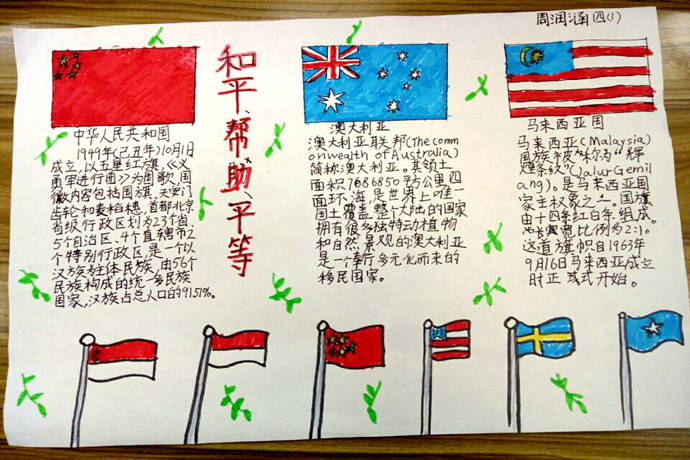 周润涵四(1)
中华人民共和国
1949年(己丑年)10月1日
成立,以五星红旗,《义
勇军进行曲》为国歌,国
徽内容包括国旗,天安门
齿轮和麦稻穗,首都北京
省级行政区划为23个省、
5个自治区、4个直辖市、2
个特别行政区,是一个以
汉族为主体民族,由56个
民族构成的统一多民族
国家,汉族占总人口的91.51%。
和平、帮助、平等
澳大利亚
澳大利亚联邦(The comm
onwealth of Australia)
简称澳大利亚。其领土
面积7686850平方公里四
面环海,是世界上唯一
国土覆盖整个大陆的国家
拥有很多独特动植物
和自然景观的澳大利亚
是一个奉行多元化而来的
移民国家。
马来西亚国
马来西亚(Malaysia)
国旗被"称为"辉
煌条纹"(Jalur Gemil
ang)。是马来西亚国
家主权象之一。国旗
由十四条红白年组成。
宽比例为2:1。
这道旗帜自1963年
9月16日马来西亚成立
时正式开始。